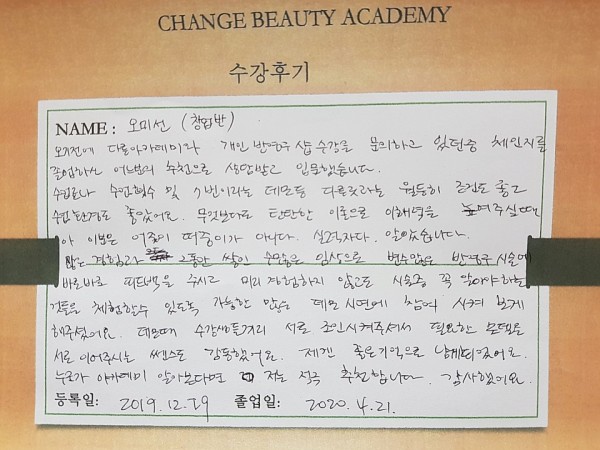 CHANGE BEAUTY ACADEMY
수강후기
NAME : 오미선 (창업반)
오기전에 다른아카데미와 개인 반영구 샵 수강을 문의하고 있던중 체인지를
졸업하신 어느분의 추천으로 상담받고 입문했습니다.
수업료나 수업횟수 및 7번이라는 데모등 다른곳과는 월등히 조건도 좋고
수업환경도 좋았어요. 무엇보다도 탄탄한 이론으로 이해력을 높여주실때
아 이분은 어중이 떠중이가 아니다. 실력자다. 알았습니다.
많은 경험과 그동안 쌓인 수많은 임상으로 변수많은 반영구 시술에
바로바로 피드백을 주시고 미리 경험하지 않고도 시술중 꼭 알아야하는
것들을 체험할수 있도록 가능한 많은 데모 시연에 참여 시켜 보게
해주셨어요. 데모때마다 수강생들끼리 서로 확인시켜주셔서 필요한
서로 이어주시는 쎈스도 감동했어요. 제겐 좋은기억으로 남게되었어요.
누군가 아카데미 알아본다면 저는 적극 추천합니다. 감사했어요.
등록일: 2019.12.29 졸업일: 2020.4.21.